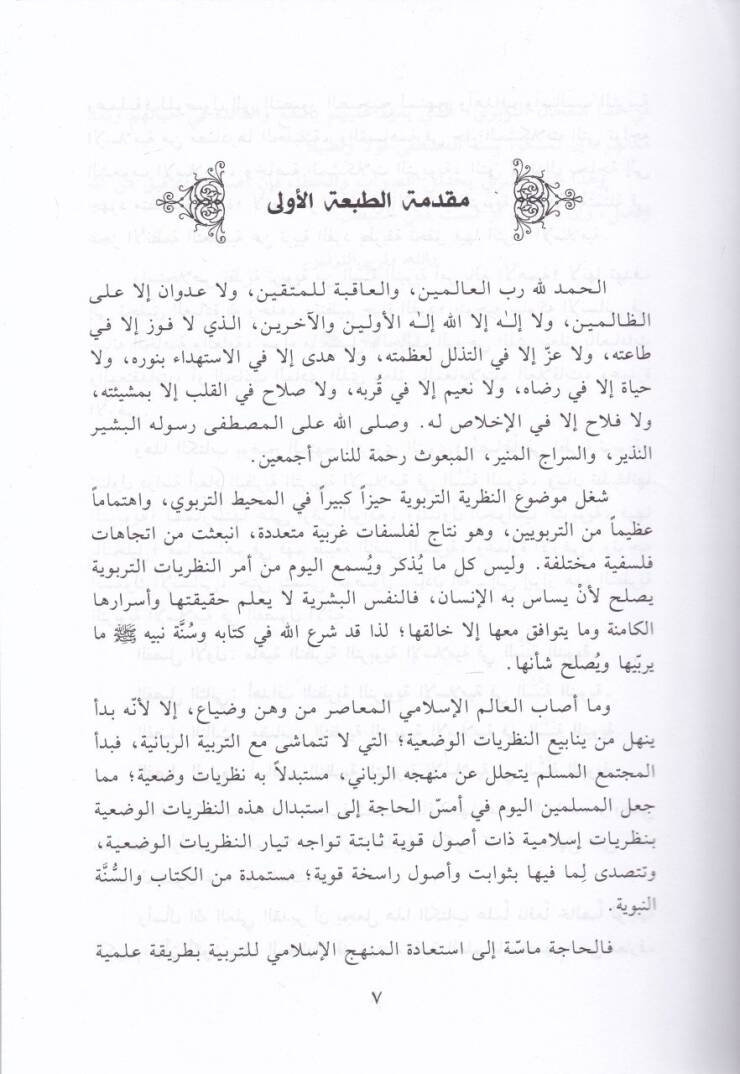 مقدمة الطبعة الأولى
الحمد لله رب العالمين، والعاقبة للمتقين، ولا عدوان إلا على
الظالمين، ولا إلـٰه إلا الله إلـٰه الأولين والآخرين، الذي لا فوز إلا في
طاعته، ولا عزّ إلا في التذلل لعظمته، ولا هدى إلا في الاستهداء بنوره، ولا
حياة إلا في رضاه، ولا نعيم إلا في قُربه، ولا صلاح في القلب إلا بمشيئته،
ولا فلاح إلا في الإخلاص له. وصلى الله على المصطفى رسوله البشير
النذير، والسراج المنير، المبعوث رحمة للناس أجمعين.
شغل موضوع النظرية التربوية حيزاً كبيراً في المحيط التربوي، واهتماماً
عظيماً من التربويين، وهو نتاج لفلسفات غربية متعددة، انبعثت من اتجاهات
فلسفية مختلفة. وليس كل ما يُذكر ويُسمع اليوم من أمر النظريات التربوية
يصلح لأنْ يساس به الإنسان، فالنفس البشرية لا يعلم حقيقتها وأسرارها
الكامنة وما يتوافق معها إلا خالقها؛ لذا قد شرع الله في كتابه وسُنَّة نبيه ﷺ ما
يربّيها ويُصلح شأنها.
وما أصاب العالم الإسلامي المعاصر من وهن وضياع، إلا لأنّه بدأ
ينهل من ينابيع النظريات الوضعية؛ التي لا تتماشى مع التربية الربانية، فبدأ
المجتمع المسلم يتحلل عن منهجه الرباني، مستبدلاً به نظريات وضعية؛ مما
جعل المسلمين اليوم في أمسّ الحاجة إلى استبدال هذه النظريات الوضعية
بنظريات إسلامية ذات أصول قوية ثابتة تواجه تيار النظريات الوضعية،
وتتصدى لِما فيها بثوابت وأصول راسخة قوية؛ مستمدة من الكتاب والسُّنَّة
النبوية.
فالحاجة ماسّة إلى استعادة المنهج الإسلامي للتربية بطريقة علمية
٧